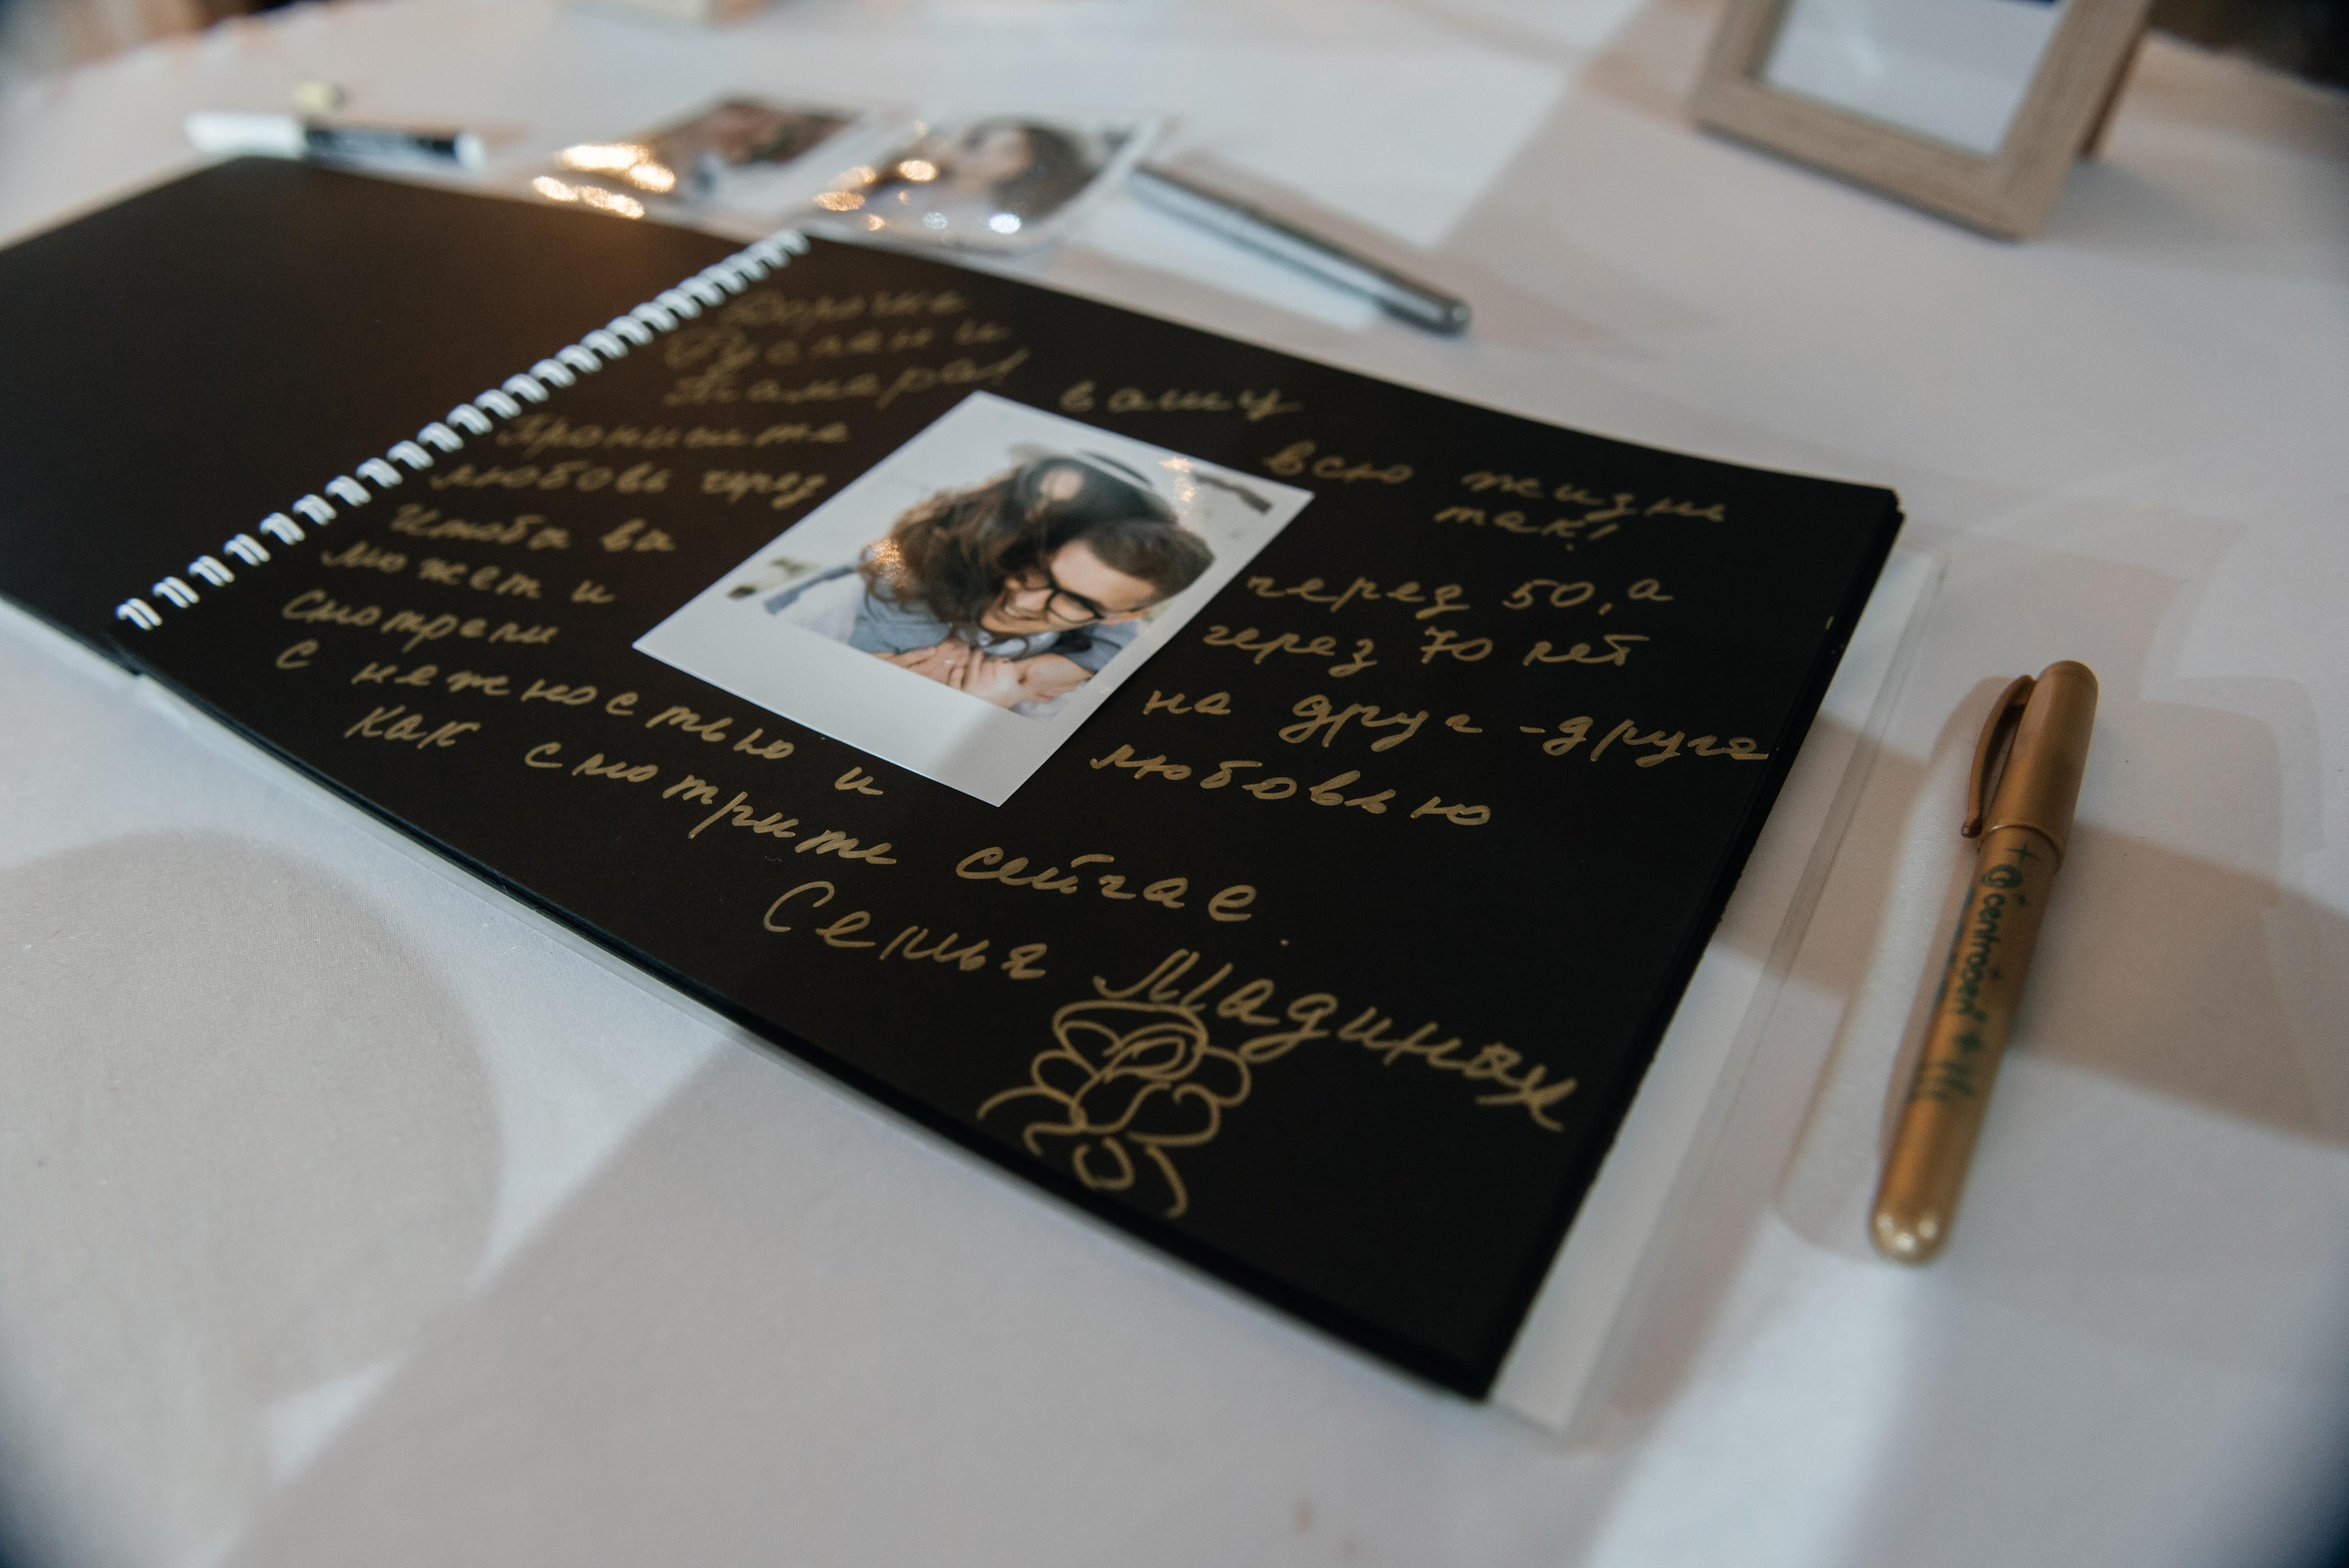 Дорогие
Руслан и
Тамара!
Храните вашу
любовь через всю жизнь
так!
Чтобы вы через 50, а
может и через 70 лет
смотрели на друг-друга
с нежностью и любовью
как смотрите сейчас.
Семья Мадиновых
@centropen